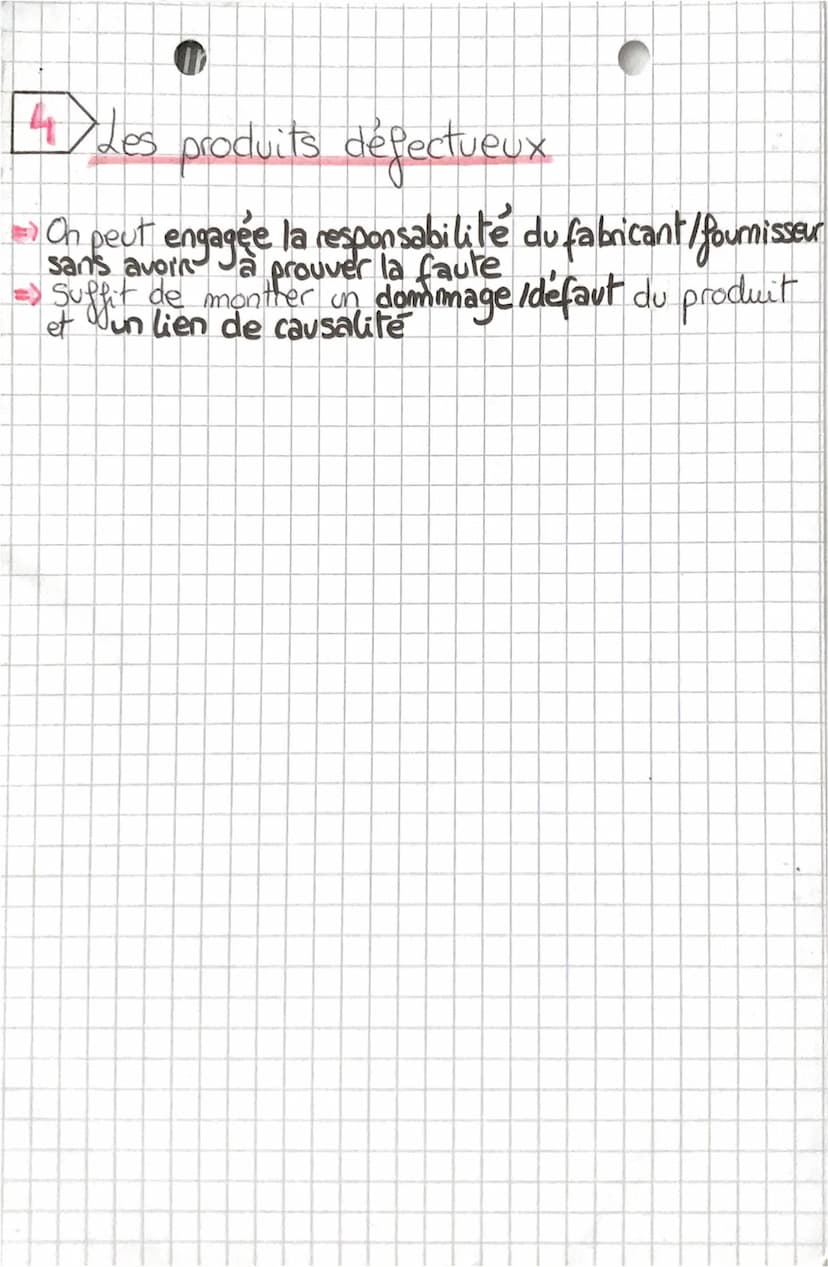 4 Les produits défectueux
=> On peut engagée la responsabilité du fabricant/fournisseur
sans avoir à prouver la faute
=> Suffit de montrer un dommage/défaut du produit
et d'un lien de causalité